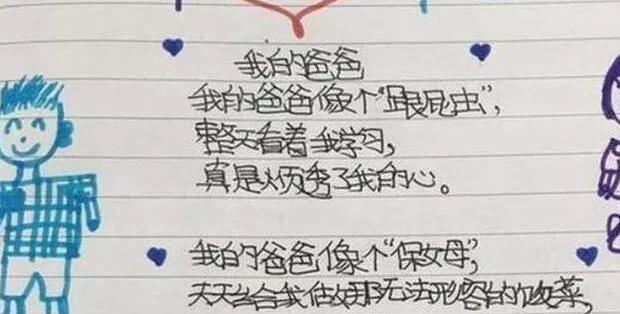 我的爸爸
我的爸爸像个“跟屁虫”,
整天看着我学习,
真是烦透了我的心。
我的爸爸像个“保女母”,
天天给我做那无法形容的饭菜,